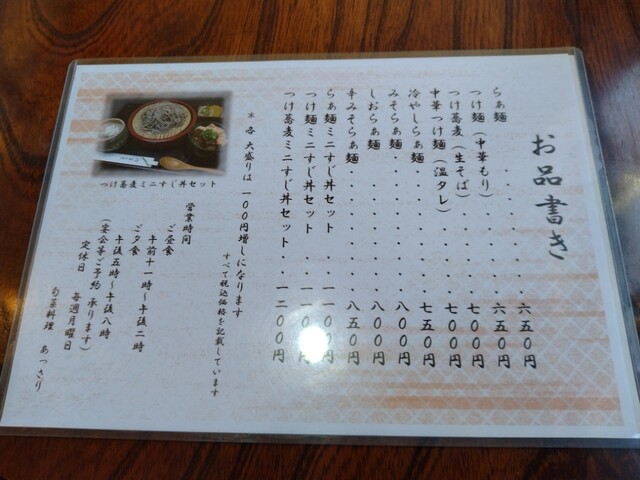 お品書き
らぁ麺・・・・・・六五〇円
つけ麺(中華もり)・・・六五〇円
つけ蕎麦(生そば)・・・七〇〇円
中華つけ麺(温タレ)・・・七〇〇円
冷やしらぁ麺・・・・・七五〇円
みそらぁ麺・・・・・・八〇〇円
しおらぁ麺・・・・・・八〇〇円
辛みそらぁ麺・・・・・八五〇円
らぁ麺ミニすじ丼セット・・一一〇〇円
つけ麺ミニすじ丼セット・・一一〇〇円
つけ蕎麦ミニすじ丼セット・・一二〇〇円
*各大盛りは一〇〇円増しになります
すべて税込価格を記載しています
つけ蕎麦ミニすじ丼セット
営業時間
ご昼食
午前十一時～午後二時
ご夕食
午後五時～午後八時
(宴会等ご予約承ります)
定休日
毎週月曜日
旬菜料理 あっさり